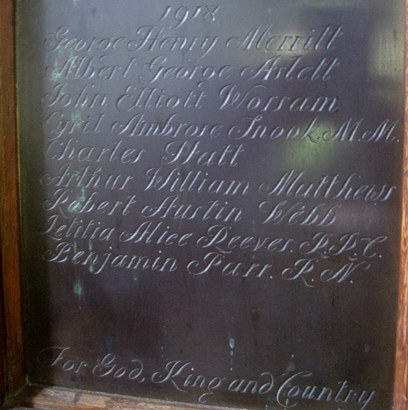 1918
George Henry Merritt
Albert George Arlett
John Elliott Worsam
Cyril Ambrose Snook. M.M.
Charles Statt
Arthur William Matthews
Robert Austin Webb
Letitia Alice Reeves. P.P.C.
Benjamin Parr. R.N.
For God, King and Country